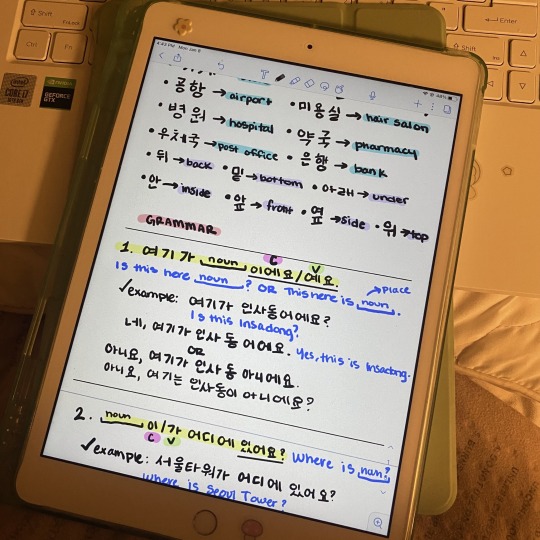 4:43 PM Mon Jan 8
48%
• 공항 → airport • 미용실 → hair salon
• 병원 → hospital • 약국 → pharmacy
• 우체국 → post office • 은행 → bank
• 뒤 → back • 밑 → bottom • 아래 → under
• 안 → inside • 앞 → front • 옆 → side • 위 → top
GRAMMAR
C V
1. 여기가 noun 이에요/예요.
Is this here noun ? OR This here is noun. → place
✓example: 여기가 인사동이에요?
Is this Insadong?
네, 여기가 인사동이에요. Yes, this is Insadong.
OR
아니요, 여기가 인사동 아니에요.
아니요, 여기는 인사동이 아니에요?
2. noun 이/가 어디에 있어요? Where is noun?
C V
✓example: 서울타워가 어디에 있어요?
Where is Seoul Tower?
Shift
Ctrl
Fn
Enter
Shift
intel
CORE i7
NVIDIA
GEFORCE
GTX